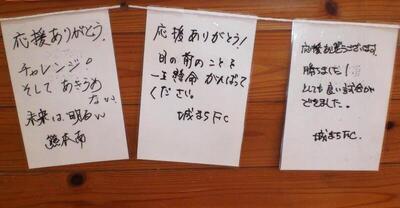 応援ありがとう。
チャレンジ。
そして あきらめ
ない。
未来は、明るい
熊本南
応援ありがとう!
目の前のことを
一生懸命 がんばって
ください。
城まちFC
応援ありがとうございます。
勝ちました!
とても良い試合が
できました。
城まちFC.